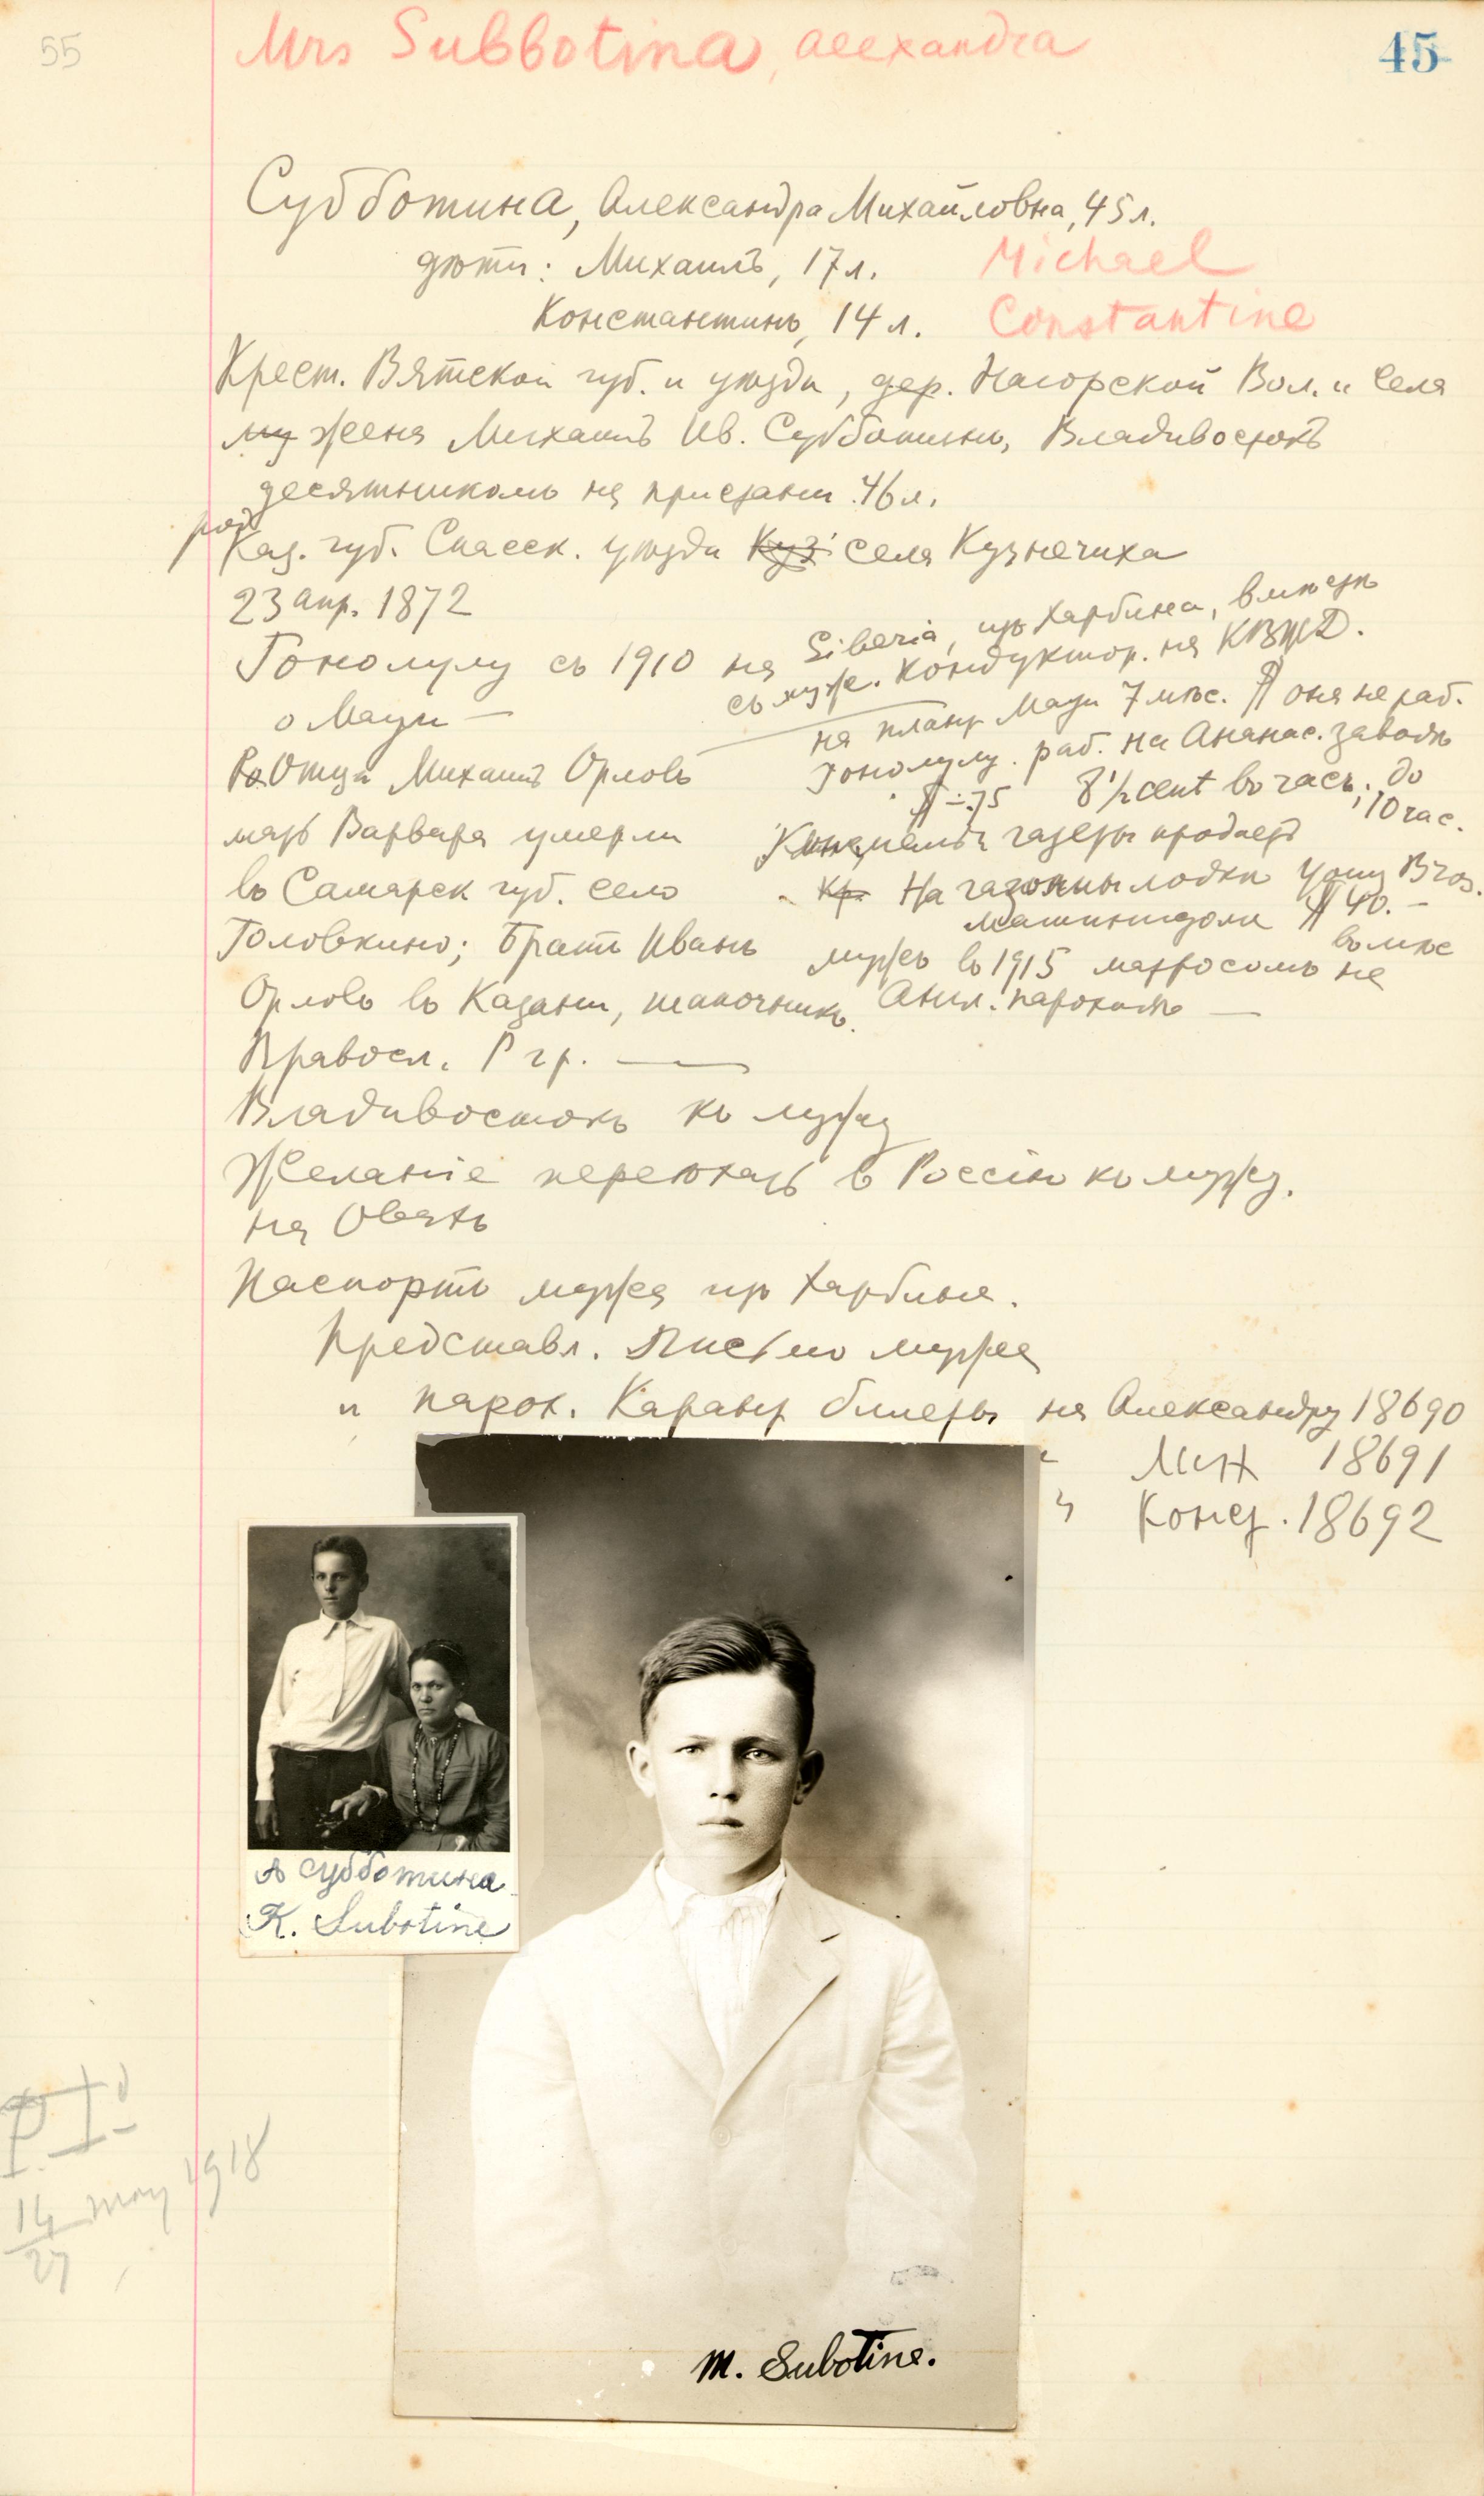 55
Mrs Subbotina, Alexandra
45
Субботина, Александра Михайловна, 45 л.
дѣти: Михаилъ, 17 л. Michael
Константинъ, 14 л. Constantine
Крест. Вятской губ. и уѣзда, дер. Нагорской Вол. и села
му жена Михаилъ Ив. Субботинъ, Владивостокъ
десятникомъ на пристани 46 л.
род
Каз. губ. Спасск. уѣзда Куз села Кузнечиха
23 апр. 1872
Гонолулу съ 1910 на Siberia, изъ Харбина, вмѣстѣ
съ муж. Кондуктор. на КВЖД.
о Мауи —
на план Мауи 7 мѣс. Я она не раб.
Гонолулу. раб. на Ананас. заводѣ
Отца Михаилъ Орловъ
.75 8 1/2 cent въ часъ, до
10 час.
мать Варвара умерли
газеты продаетъ
въ Самарск губ. село
Кр. На лодки Young Bros.
машинистом $40.—
въ мѣс
Головкино; Братъ Иванъ
мужъ въ 1915 матросомъ на
Орловъ въ Казани, шапочникъ.
Англ. пароходѣ —
Правосл. Р гр. —
Владивостокъ къ мужу
Желаніе переѣхать в Россію къ мужу.
на
Паспортъ мужа изъ Харбина.
Представл. Письмо мужа
и парох. билеты на Александру 18690
" Мих 18691
" Конст. 18692
А Субботина
K. Subotine
M. Subotine.
P. I.
14 May 1918
27